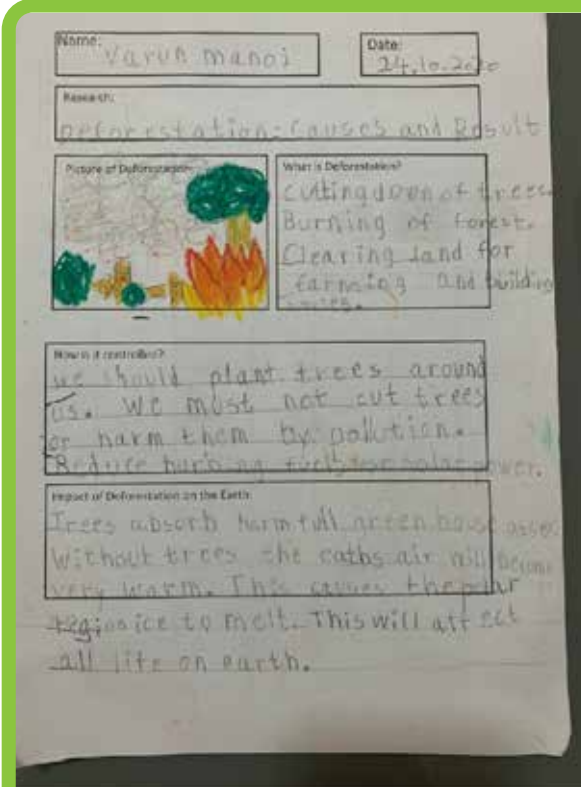 Name:
Varun manoj
Date:
24.10.2020
Research:
Deforestation: Causes and Result
Picture of Deforestation:
What is Deforestation?
Cutting down of trees.
Burning of forest.
Clearing land for
farming and building
How is it controlled?
we should plant trees around
us. We must not cut trees
or harm them by pollution.
Reduce burning fuels use solar power.
Impact of Deforestation on the Earth:
Trees absorb harmfull green house
Without trees the eaths air will become
very warm. This causes the polar
region ice to melt. This will affect
all life on earth.